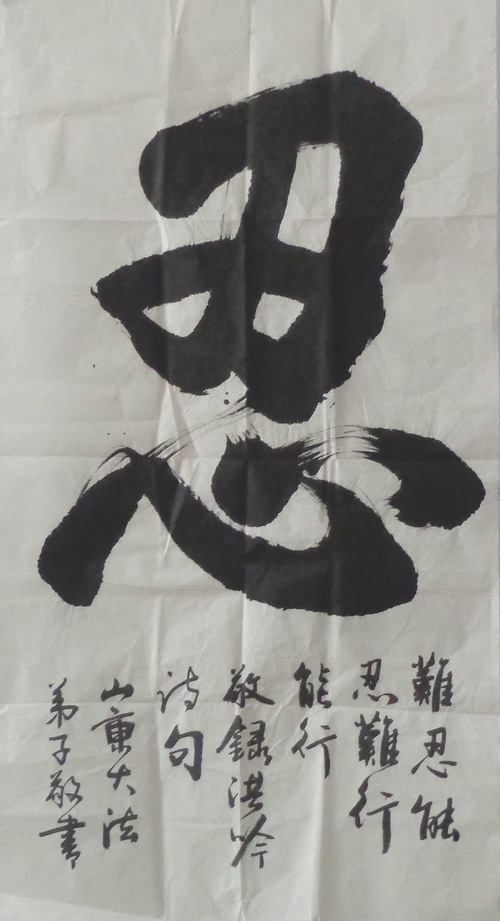 忍
難忍能
忍難行
能行
敬録洪吟
詩句
山東大法
弟子敬書